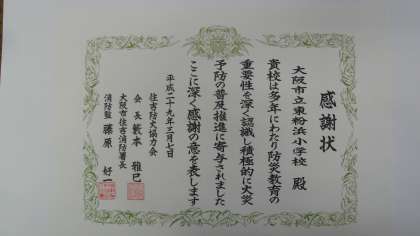 感謝状
大阪市立東粉浜小学校 殿
貴校は多年にわたり防災教育の
重要性を深く認識し積極的に火災
予防の普及推進に寄与されました
ここに深く感謝の意を表します
平成二十九年三月七日
住吉防火協力会
会長 籔本 雅巳
大阪市住吉消防署長
消防監 藤原 好一